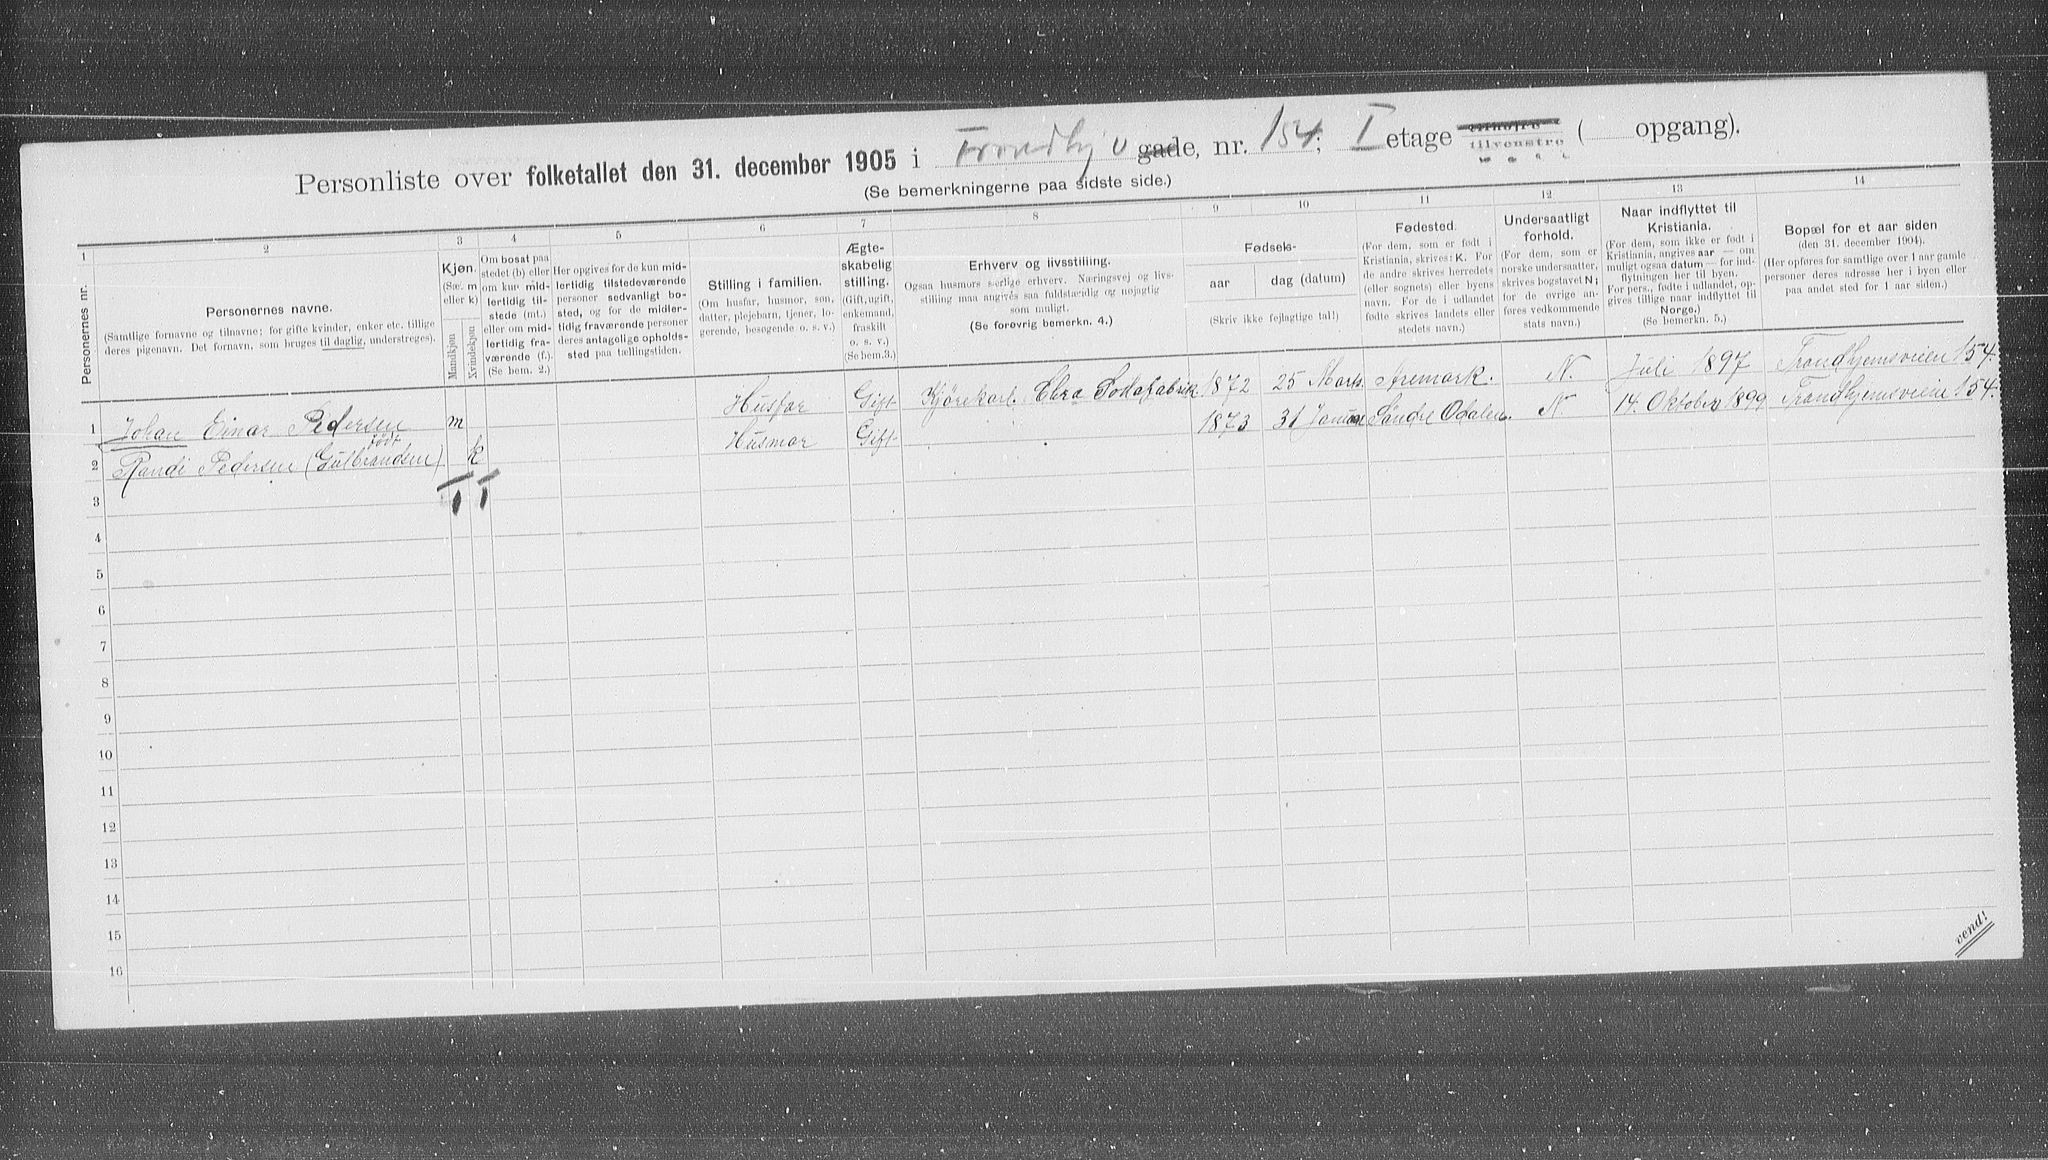 Personliste over folketallet den 31. december 1905 i Trondhj v gade, nr. 154; I etage tilhøjre tilvenstre ( opgang).
(Se bemerkningerne paa sidste side.)
1 2 3 4 5 6 7 8 9 10 11 12 13 14
Personernes nr.
Personernes navne.
(Samtlige fornavne og tilnavne; for gifte kvinder, enker etc. tillige
deres pigenavn. Det fornavn, som bruges til daglig, understreges).
Kjøn.
(Sæt m
eller k)
Mandkjøn
Kvindekjøn
Om bosat paa
stedet (b) eller
om kun mid-
lertidig til-
stede (mt.)
eller om mid-
lertidig fra-
værende (f.).
(Se bem. 2.)
Her opgives for de kun mid-
lertidig tilstedeværende
personer sedvanligt bo-
sted, og for de midler-
tidig fraværende personer
deres antagelige opholds-
sted paa tællingstiden.
Stilling i familien.
(Om husfar, husmor, søn,
datter, plejebarn, tjener, lo-
gerende, besøgende o. s. v.)
Ægte-
skabelig
stilling.
(Gift, ugift,
enkemand,
fraskilt
o. s. v.)
(Se bem. 3.)
Erhverv og livsstilling.
Ogsaa husmors særlige erhverv. Næringsvej og livs-
stilling maa angives saa fuldstændig og nøjagtig
som muligt.
(Se forøvrig bemerkn. 4.)
Fødsels-
aar
dag (datum)
(Skriv ikke fejlagtige tal!)
Fødested.
(For dem, som er født i
Kristiania, skrives: K. For
de andre skrives herredets
(eller sognets) eller byens
navn. For de i udlandet
fødte skrives landets eller
stedets navn.)
Undersaatligt
forhold.
(For dem, som er
norske undersaatter,
skrives bogstavet N;
for de øvrige an-
føres vedkommende
stats navn.)
Naar indflyttet til
Kristiania.
(For dem, som ikke er født i
Kristiania, angives aar — om
muligt ogsaa datum — for ind-
flytningen her til byen.
For pers., fødte i udlandet, op-
gives tillige naar indflyttet til
Norge.)
(Se bemerkn. 5.)
Bopæl for et aar siden
(den 31. december 1904).
(Her opføres for samtlige over 1 aar gamle
personer deres adresse her i byen eller
paa andet sted for 1 aar siden.)
1 Johan Einar Pedersen m Husfar Gift Kjørekarl. Sodafabrik 1872 25 Marts Aremark. N. Juli 1897 Trondhjemsveien 154.
2 Randi Pedersen (født Gulbrandsen) k Husmor Gift 1873 31 Januar Søndre Odalen. N 14. Oktober 1899 Trondhjemsveien 154.
3 1 1
4
5
6
7
8
9
10
11
12
13
14
15
16
vend!